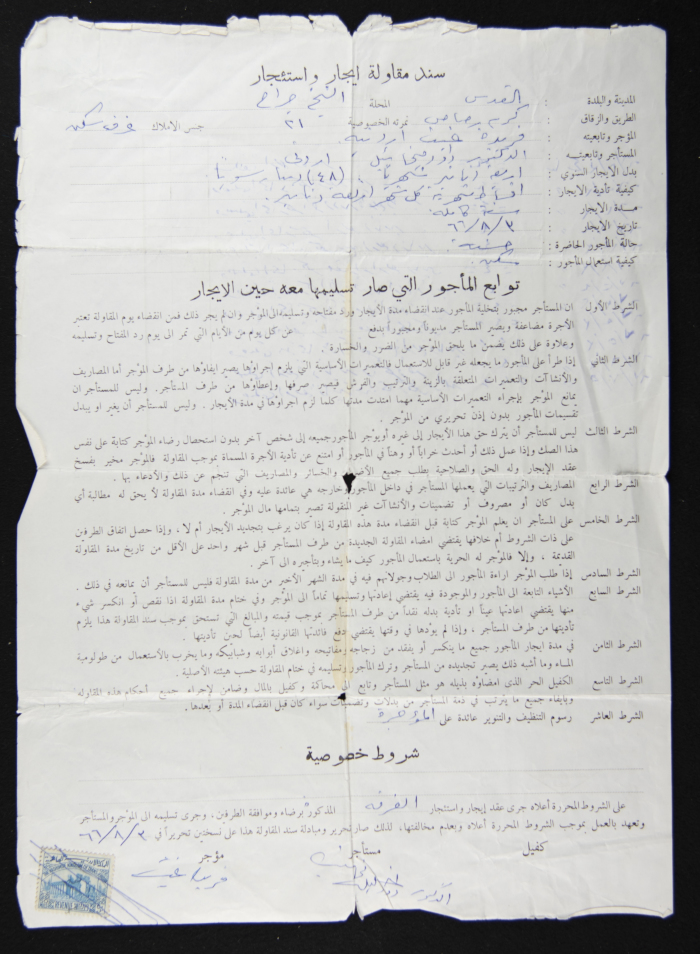 سند مقاولة ايجار واستئجار
المدينة والبلدة : القدس المحلة الشيخ جراح
الطريق والزقاق : كرم نمرته الخصوصية ٣١ جنس الاملاك غرف سكن
المؤجر وتابعيته : فريدة اردنية
المستأجر وتابعيته : الدكتور اردني
بدل الايجار السنوي : اربعة دنانير شهريا (٤٨) دينار سنويا
كيفية تأدية الايجار : أقساط شهرية كل شهر اربعة دنانير
مدة الايجار : سنة كاملة
تاريخ الايجار : ٦٦/٨/٣
حالة المأجور الحاضرة : حسنة
كيفية استعمال المأجور : سكن
توابع المأجور التي صار تسليمها معه حين الايجار
الشرط الأول ان المستأجر مجبور بتخلية المأجور عند انقضاء مدة الأيجار ورد مفتاحه وتسليمه الى المؤجر وان لم يجر ذلك فمن انقضاء يوم المقاولة تعتبر
الأجرة مضاعفة ويصير المستأجر مديوناً ومجبوراً بدفع عن كل يوم من الأيام التي تمر الى يوم رد المفتاح وتسليمه
وعلاوة على ذلك يضمن ما يلحق المؤجر من الضرر والخسارة .
الشرط الثاني إذا طرأ على المأجور ما يجعله غير قابل للاستعمال فالتعميرات الأساسية التي يلزم اجراؤها يصير ايفاؤها من طرف المؤجر أما المصاريف
والأنشآت والتعميرات المتعلقة بالزينة والترتيب والفرش فيصير صرفها وإعطاؤها من طرف المستأجر. وليس للمستأجر ان
يمانع المؤجر بإجراء التعميرات الأساسية مهما امتدت مدتها كلما لزم اجراؤها في مدة الأيجار . وليس للمستأجر أن يغير او يبدل
تقسيمات المأجور بدون إذن تحريري من المؤجر.
الشرط الثالث ليس للمستأجر أن يترك حق هذا الأيجار إلى غيره أو يؤجر المأجور جميعه إلى شخص آخر بدون استحصال رضاء المؤجر كتابة على نفس
هذا الصك وإذا عمل ذلك أو أحدث خراباً أو وهناً في المأجور أو امتنع عن تأدية الأجرة المسماة بموجب المقاولة فالمؤجر مخير بفسخ
عقد الإيجار وله الحق والصلاحية بطلب جميع والخسائر والمصاريف التي تنجم عن ذلك والأدعاء بها .
الشرط الرابع المصاريف والترتيبات التي يعملها المستأجر في داخل المأجور وخارجه هي عائدة عليه وفي انقضاء مدة المقاولة لا يحق له مطالبة أي
بدل كان أو مصروف أو تضمينات والأنشاآت غير المنقولة تصير بتمامها مال المؤجر .
الشرط الخامس على المستأجر ان يعلم المؤجر كتابة قبل انقضاء مدة هذه المقاولة إذا كان يرغب بتجديد الأيجار أم لا ، وإذا حصل اتفاق الطرفين
على ذات الشروط أم خلافها يقتضي امضاء المقاولة الجديدة من طرف المستأجر قبل شهر واحد على الأقل من تاريخ مدة المقاولة
القديمة ، وإلا فالمؤجر له الحرية باستعمال المأجور كيف ما يشاء وبتأجيره الى آخر .
الشرط السادس إذا طلب المؤجر اراءة المأجور الى الطلاب وجولانهم فيه في مدة الشهر الأخير من مدة المقاولة فليس للمستأجر أن يمانعه في ذلك .
الشرط السابع الأشياء التابعة الى المأجور والموجودة فيه يقتضي إعادتها وتسليمها تماماً الى المؤجر وفي ختام مدة المقاولة اذا نقص أو انكسر شيء
منها يقتضي اعادتها عيناً او تأدية بدله نقداً من طرف المستأجر بموجب قيمته والمبالغ التي تستحق بموجب سند المقاولة هذا يلزم
تأديتها من طرف المستأجر ، وإذا لم يؤدها في وقتها يقتضي دفع فائدتها القانونية أيضاً لحين تأديتها .
الشرط الثامن في مدة ايجار المأجور جميع ما ينكسر أو يفقد من زجاجه ومفاتيحه واغلاق أبوابه وشبابيكه وما يخرب بالاستعمال من طولومبة
الماء وما أشبه ذلك يصير تجديده من المستأجر وترك المأجور وتسليمه في ختام المقاولة حسب هيئته الأصلية .
الشرط التاسع الكفيل الحر الذي امضاؤه بذيله هو مثل المستأجر وتابع الى محاكمة وكفيل بالمال وضامن لإجراء جميع أحكام هذه المقاولة
وبايفاء جميع ما يترتب في ذمة المستأجر من بدلات وتضمينات سواء كان قبل انقضاء المدة أو بعدها .
الشرط العاشر رسوم التنظيف والتنوير عائدة على المؤجرة
شروط خصوصية
على الشروط المحررة أعلاه جرى عقد إيجار واستئجار الغرفة المذكور برضاء وموافقة الطرفين، وجرى تسليمه الى المؤجر والمستأجر
وتعهد بالعمل بموجب الشروط المحررة أعلاه وبعدم مخالفتها، لذلك صار تحرير ومبادلة سند المقاولة هذا على نسختين تحريراً في ٦٦/٨/٣
كفيل مستأجر مؤجر
الدكتور